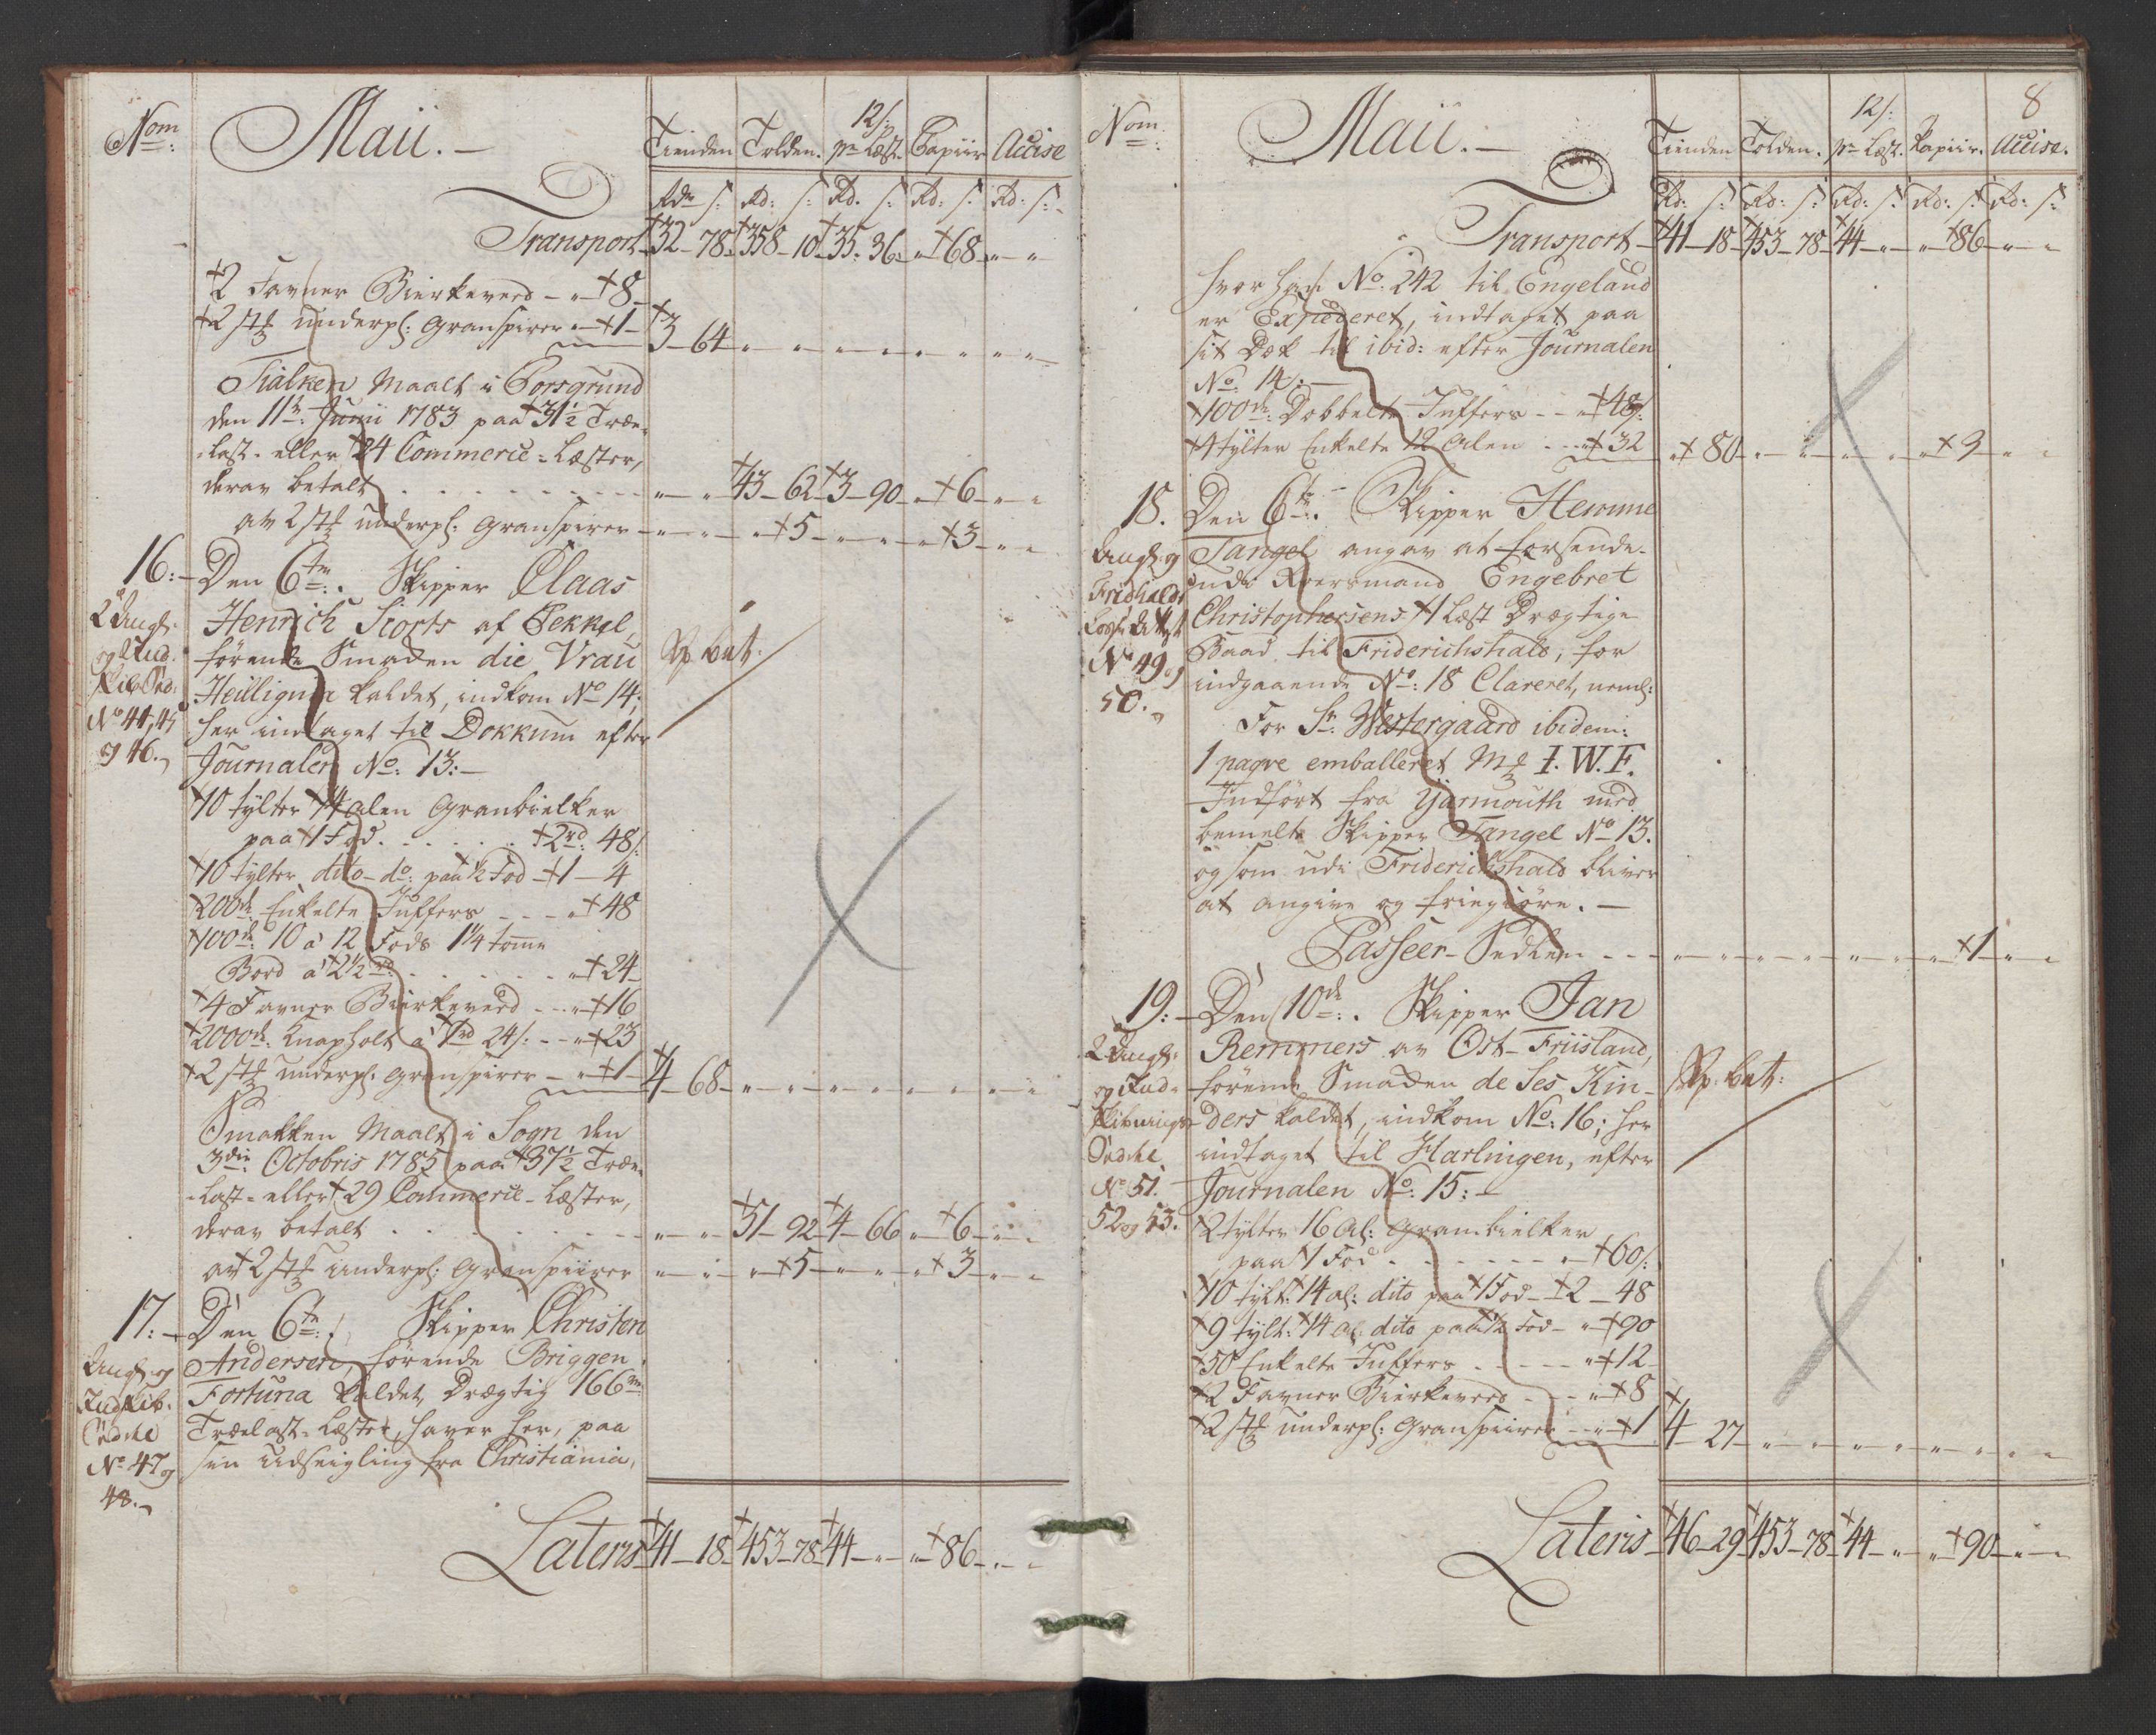 Nom:
Maii.
Tienden Tolden. 12 s: pr Læst. Papiir Accise
Rdr s: Rd: s: Rd. s: Rd: s: Rd: s:
Transport 32 - 78 - 358 - 10 - 35 - 36 - " - 68 - " - "
2 Favner Birkeved - " - 8
2 stk underpl: Granspirer " - 1 - 3 - 64
Tialken Maalt i Porsgrund
den 11te Junii 1783 paa 31½ Træ-
Last eller 24 Commerce-Læster,
derav betalt . . . 43 - 62 - 3 - 90 - " - 6 - " - "
av 2 stk underpl: Granspirer - " - 5 - " - 3 - " - "
16: Den 6te. Skipper Claas
Henrich Siorts af Pekkel,
førende Smakken die Vrau
Heilligina kaldet, indkom No 14;
her indtaget til Dokkum efter
Journalen No: 13:
No 44, 45
og 46.
10 tylter 14 alen Granbielker
paa 1 Fod . . . . . 2 rd: 48 s:
10 tylter dito do: paa ½ Fod - 1 - 4
200de Enkelte Juffers - - - " 48
100de: 10 a 12 Fods 1¼ tomme
Bord a 2½ rd . . . . " 24
4 Favner Birkeved - - " 16
2000de: Knapholt a 1 rd 24 s: - - " 23
2 stk underpl: Granspirer - " - 1 - 4 - 68
Smakken Maalt i Sogn den
3die Octobris 1785 paa 37½ Træ-
Last- eller 29 Commerce-Læster,
derav betalt . . . 51 - 92 - 4 - 66 - " - 6 - " - "
av 2 stk underpl: Granspiirer - " - 5 - " - 3 - " - "
17: Den 6te: Skipper Christen
Andersen, førende Briggen
Fortuna kaldet, Drægtig 166
Trælast-Læster, haver her, paa
sin Udseigling fra Christiania,
No 47 og
48.
Lateris 41 - 18 - 453 - 78 - 44 - " - " - 86 - " - "
8
Nom:
Maii.
Tienden Tolden. 12 s: pr Læst. Papiir. Accise.
Rd: s: Rd: s: Rd: s: Rd: s: Rd: s:
Transport 41 - 18 - 453 - 78 - 44 - " - " - 86 - " - "
hvor han No: 242 til Engeland
er Expederet, indtaget paa
sit Dæk til ibid: efter Journalen
No: 14:
100de: Dobbelte Juffers - - " 48 s:
4 tylter Enkelte 12 Alen - - " 32 - " 80 - " - " - 3 - " - "
18. Den 6te: Skipper Hemme
Tangel angav at forsende
udi Roersmand Engebret
Christophersens 1 Læst Drægtige
Baad til Friderichshald, for
indgaaende No: 18 Clareret, neml:
No 49 og
50.
For Sr: Westergaard ibidem:
1 paqve emballeret Mk I. W. F.
Indført fra Yarmouth med
bemelte Skipper Tangel No 13.
og som udi Friderichshald bliver
at angive og friegiøre.
Passeer-Sedlen - - - 1 - " - "
19: Den 10de: Skipper Jan
Remmers av Ost-Friisland,
førende Smakken de Ses Kin-
ders kaldet, indkom No: 16; her
indtaget til Harlingen, efter
Journalen No: 15:
No 51.
52 og 53.
2 tylter 16 Al: Granbielker
paa 1 Fod . . . . . " 60 s:
10 tylt: 14 al: dito paa 1 Fod - 2 - 48
9 tylt: 14 al: dito paa ½ Fod - " 90
50 Enkelte Juffers - - - " 12
2 Favner Birkeved - - " 8
2 stk underpl: Granspiirer - " - 1 - 4 - 27
Lateris 46 - 29 - 453 - 78 - 44 - " - " - 90 - " - "